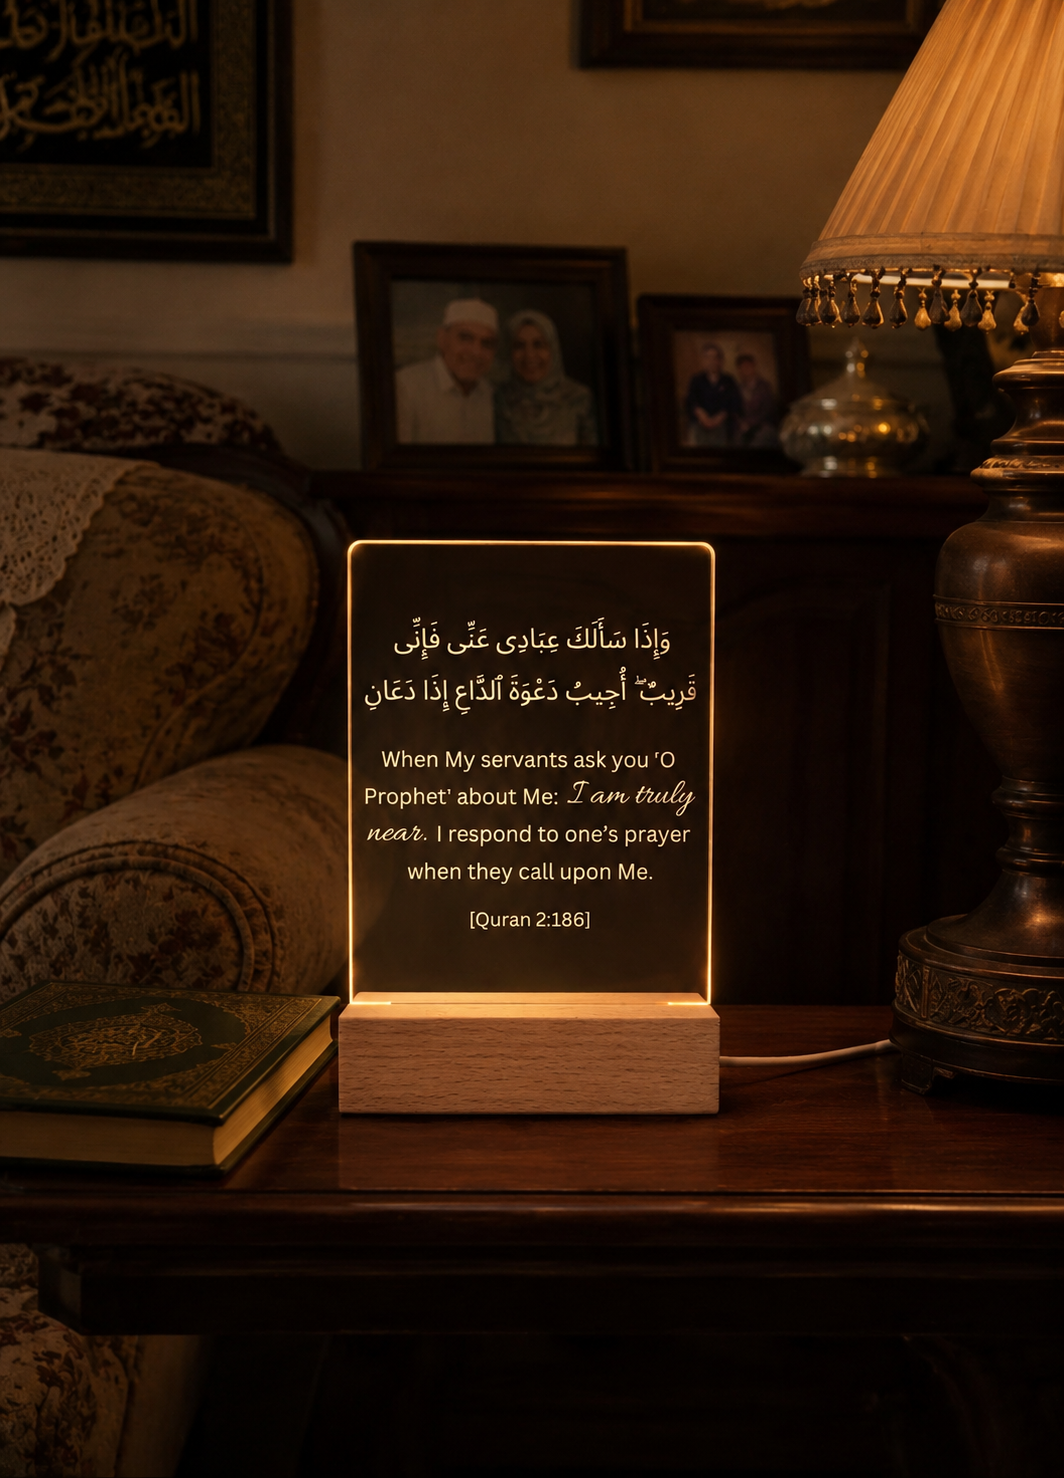 وَإِذَا سَأَلَكَ عِبَادِى عَنِّى فَإِنِّى
قَرِيبٌ ۖ أُجِيبُ دَعْوَةَ ٱلدَّاعِ إِذَا دَعَانِ
When My servants ask you ‘O
Prophet’ about Me: I am truly
near. I respond to one’s prayer
when they call upon Me.
[Quran 2:186]